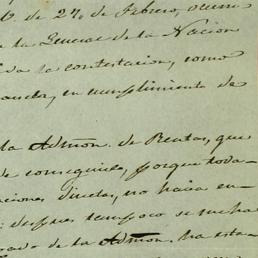 6. de 27 de febrero, ocurri
la General de la Nacion
la contestacion, como
en cumplimiento de
la Admon. de Rentas, que
conseguirle, porque toda-
ciones directas, no hacia en-
despues tampoco se nucha
de la Admon, ha esta-